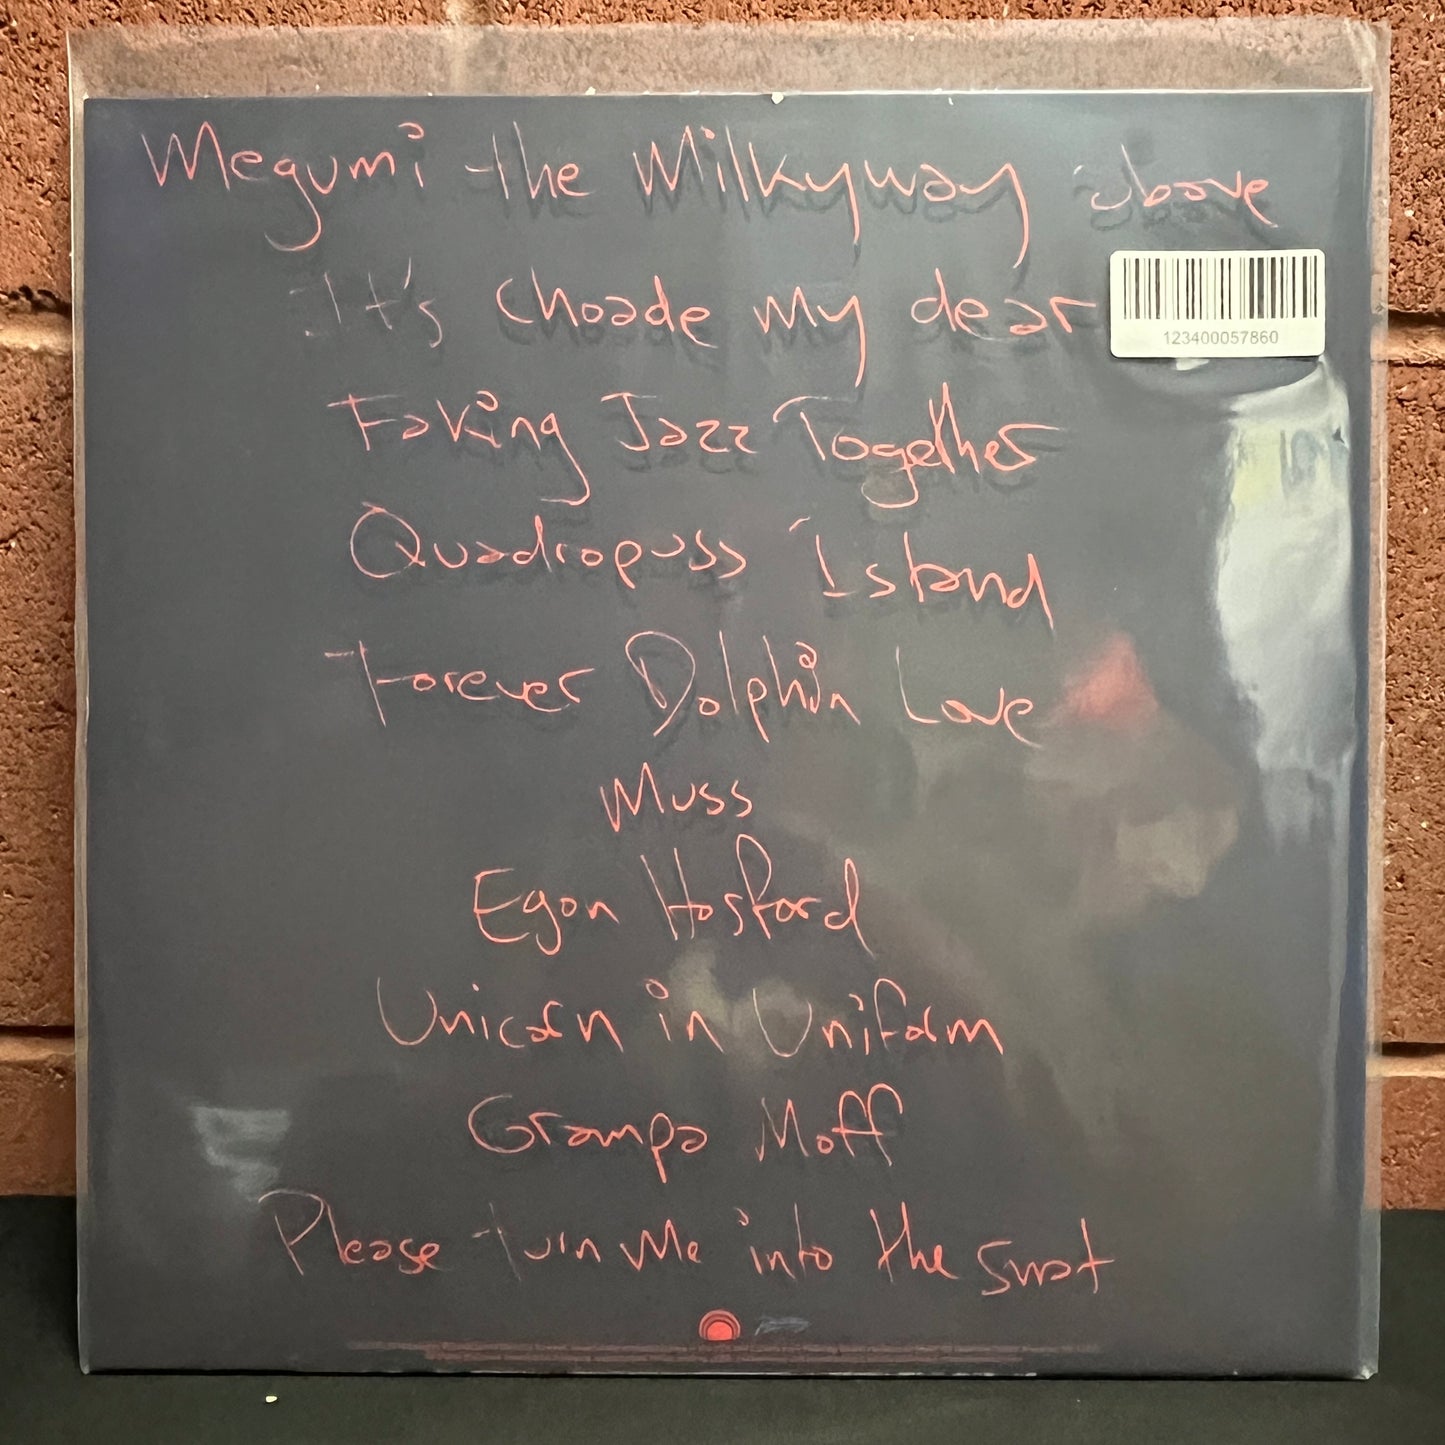 Megumi the Milkyway above
It's Choade my dear
123400057860
Faking Jazz Together
Quadropuss Island
Forever Dolphin Love
Muss
Egon Hosford
Unicorn in Uniform
Grampa Moff
Please turn Me into the Snat